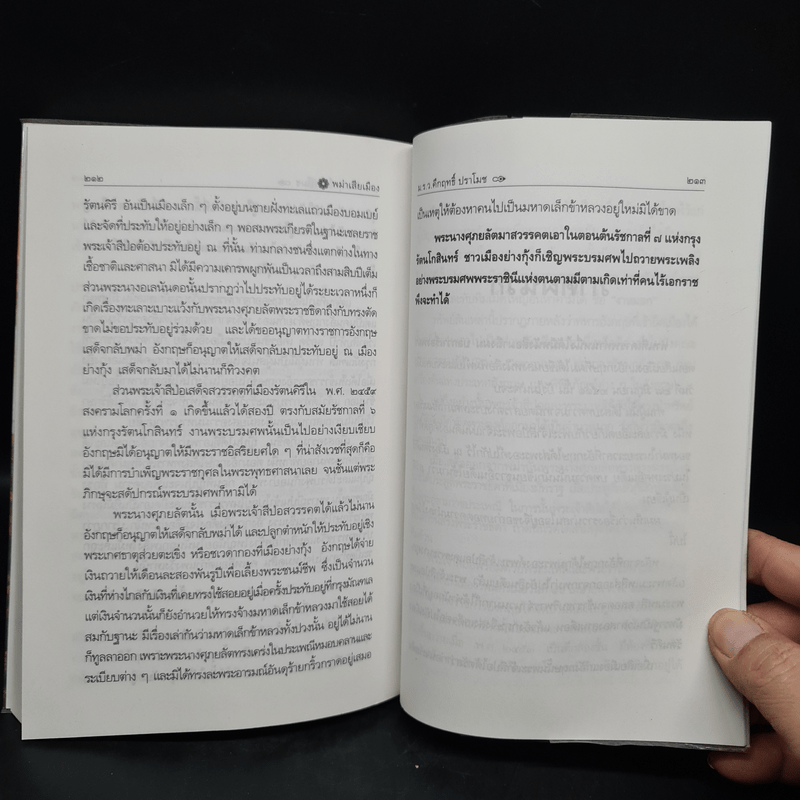 ๒๑๒
พม่าเสียเมือง
รัตนคิรี อันเป็นเมืองเล็ก ๆ ตั้งอยู่บนชายฝั่งทะเลแถวเมืองบอมเบย์
และจัดที่ประทับให้อยู่อย่างเล็ก ๆ พอสมพระเกียรติในฐานะเชลยราช
พระเจ้าสีป่อต้องประทับอยู่ ณ ที่นั้น ท่ามกลางชนซึ่งแตกต่างในทาง
เชื้อชาติและศาสนา มิได้มีความเคารพผูกพันเป็นเวลาถึงสามสิบปีเต็ม
ส่วนพระนางอเลนันดอนั้นปรากฏว่าไปประทับอยู่ได้ระยะเวลาหนึ่งก็
เกิดเรื่องทะเลาะเบาะแว้งกับพระนางศุภยลัตพระราชธิดาถึงกับทรงตัด
ขาดไม่ขอประทับอยู่ร่วมด้วย และได้ขออนุญาตทางราชการอังกฤษ
เสด็จกลับพม่า อังกฤษก็อนุญาตให้เสด็จกลับมาประทับอยู่ ณ เมือง
ย่างกุ้ง เสด็จกลับมาได้ไม่นานก็ทิวงคต
ส่วนพระเจ้าสีป่อเสด็จสวรรคตที่เมืองรัตนคิรีใน พ.ศ. ๒๔๕๙
สงครามโลกครั้งที่ ๑ เกิดขึ้นแล้วได้สองปี ตรงกับสมัยรัชกาลที่ ๖
แห่งกรุงรัตนโกสินทร์ งานพระบรมศพนั้นเป็นไปอย่างเงียบเชียบ
อังกฤษมิได้อนุญาตให้มีพระราชอิสริยยศใด ๆ ที่น่าสังเวชที่สุดก็คือ
มิได้มีการบำเพ็ญพระราชกุศลในพระพุทธศาสนาเลย จนชั้นแต่พระ
ภิกษุจะสดับปกรณ์พระบรมศพก็หามิได้
พระนางศุภยลัตนั้น เมื่อพระเจ้าสีป่อสวรรคตได้แล้วไม่นาน
อังกฤษก็อนุญาตให้เสด็จกลับพม่าได้ และปลูกตำหนักให้ประทับอยู่เชิง
พระเกศธาตุส่วยตะเชิง หรือชเวดากองที่เมืองย่างกุ้ง อังกฤษได้จ่าย
เงินถวายให้เดือนละสองพันรูปีเพื่อเลี้ยงพระชนม์ชีพ ซึ่งเป็นจำนวน
เงินที่ห่างไกลกับเงินที่เคยทรงใช้สอยอยู่เมื่อครั้งประทับอยู่ที่กรุงมัณฑเล
แต่เงินจำนวนนั้นก็ยังอำนวยให้ทรงจ้างมหาดเล็กข้าหลวงมาใช้สอยได้
สมกับฐานะ มีเรื่องเล่ากันว่ามหาดเล็กข้าหลวงทั้งปวงนั้น อยู่ได้ไม่นาน
ก็ทูลลาออก เพราะพระนางศุภยลัตทรงเคร่งในประเพณีหมอบคลานและ
ระเบียบต่าง ๆ และมิได้ทรงละพระอารมณ์อันดุร้ายกริ้วกราดอยู่เสมอ
ม.ร.ว.คึกฤทธิ์ ปราโมช
๒๑๓
เป็นเหตุให้ต้องหาคนไปเป็นมหาดเล็กข้าหลวงอยู่ใหม่มิได้ขาด
พระนางศุภยลัตมาสวรรคตเอาในตอนต้นรัชกาลที่ ๗ แห่งกรุง
รัตนโกสินทร์ ชาวเมืองย่างกุ้งก็เชิญพระบรมศพไปถวายพระเพลิง
อย่างพระบรมศพพระราชินีแห่งตนตามมีตามเกิดเท่าที่คนไร้เอกราช
พึงจะทำได้